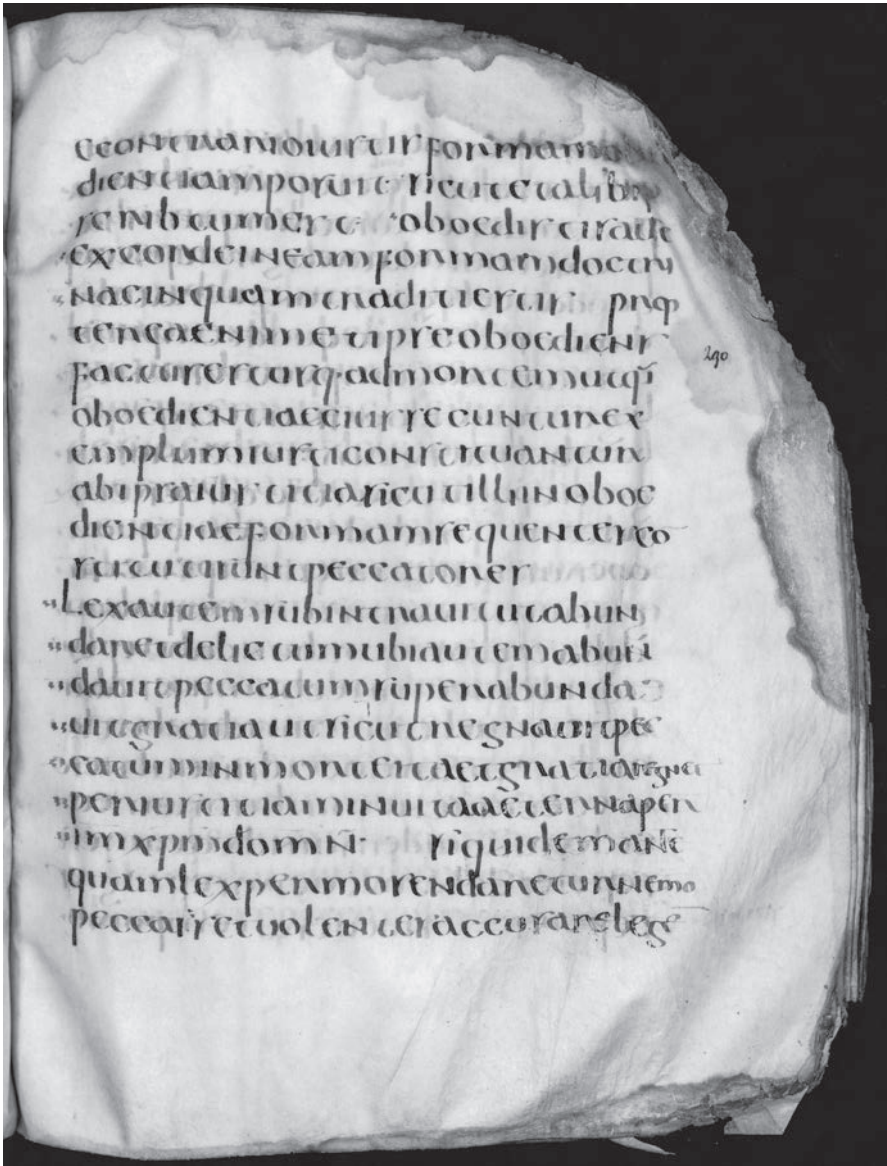 econtrario iustis formam
dientiam posuit sicut et alibi
scribtum est · oboedistis
ex corde in eam formam doctri
nae in quam traditi estis · prop
terea enim et ipse oboediens
factus est usq· ad mortem ut qi
oboedientiae eius secuntur ex
emplum iusti constituantur
ab ipsa iustitia sicut illi inoboe
dientiae formam sequentes co
stituti sunt peccatores
Lex autem subintrauit ut abun
daret delictum ubi autem abun
dauit peccatum superabunda
uit gratia ut sicut regnauit pec
catum in mortem ita et gratia regnet
per iustitiam in uita aeterna per
ihm xpm dom n̄· siquidem ante
quam lex per mosen daretur nemo
peccasset uolenter accusare lege
290